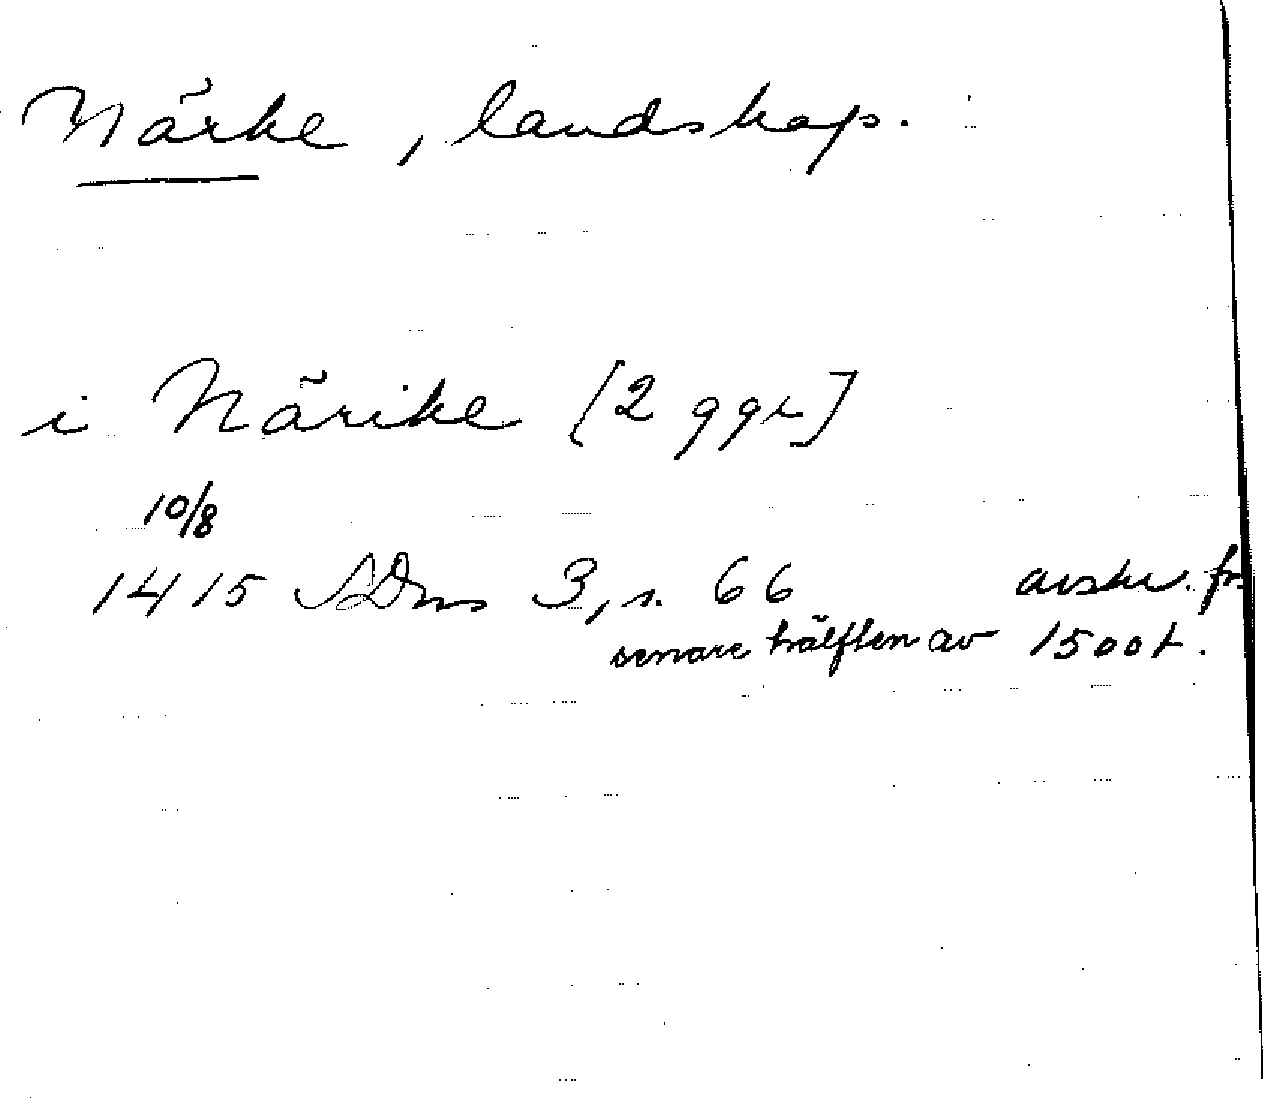 Närke, landskap.
i Närike [2 ggr]
10/8
1415 SDns 3, s. 66 avskr. fr.
senare hälften av 1500t.